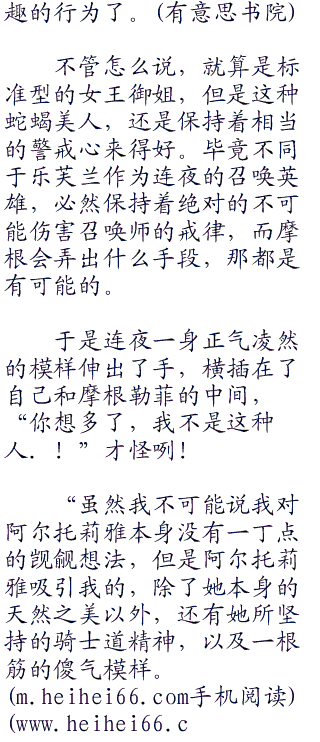 趣的行为了。(有意思书院)
不管怎么说，就算是标
准型的女王御姐，但是这种
蛇蝎美人，还是保持着相当
的警戒心来得好。毕竟不同
于乐芙兰作为连夜的召唤英
雄，必然保持着绝对的不可
能伤害召唤师的戒律，而摩
根会弄出什么手段，那都是
有可能的。
于是连夜一身正气凌然
的模样伸出了手，横插在了
自己和摩根勒菲的中间，
“你想多了，我不是这种
人．！”才怪咧！
“虽然我不可能说我对
阿尔托莉雅本身没有一丁点
的觊觎想法，但是阿尔托莉
雅吸引我的，除了她本身的
天然之美以外，还有她所坚
持的骑士道精神，以及一根
筋的傻气模样。
(m.heihei66.com手机阅读)
(www.heihei66.c